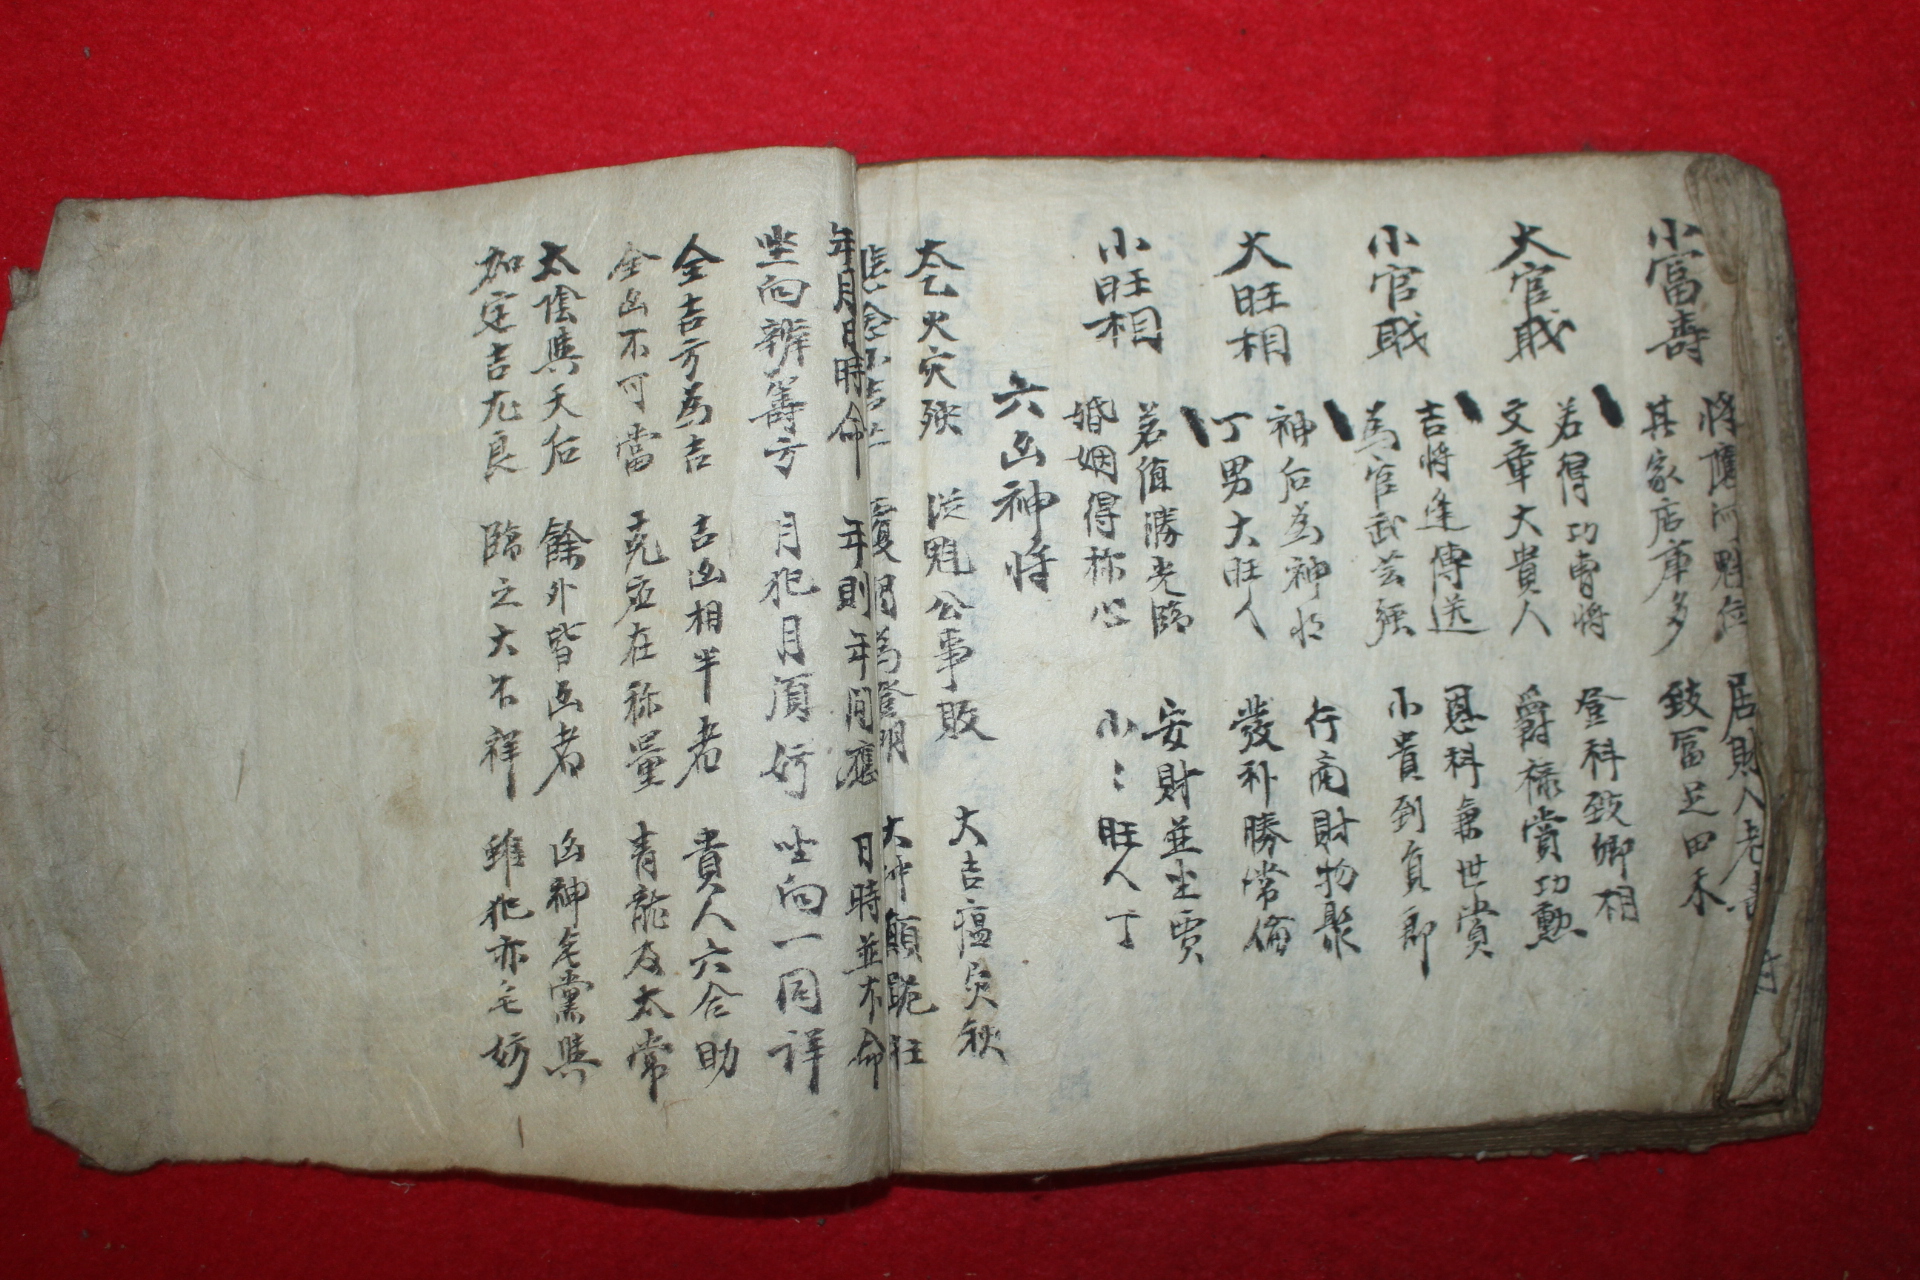 小富壽
將 河魁位 居財
其家店庫多 致富足田禾
大官戝
若得功曹將 登科致卿相
文章大貴人 爵祿賞功勳
小官戝
吉將逢傳送 恩科兼世賞
爲官武芸強 小貴到負郎
大旺相
神后爲神將 行商財物聚
丁男大旺人 發科勝常倫
小旺相
若值勝光臨 安財並坐賈
婚姻得称心 小〻旺人丁
六凶神將
太乙火灾殃 從魁公事敗 大吉瘟
爲登明 大冲顛
年月日時命 年則年間應 日時並不命
坐向辨籌方 月犯月須妨 坐向一同詳
全吉方爲吉 吉凶相半者 貴人六合助
全凶不可當 克应在称量 青龍及太常
太陰與天后 餘外皆凶者 凶神乞黨與
加定吉尤良 臨之大不祥 雖犯亦乞妨